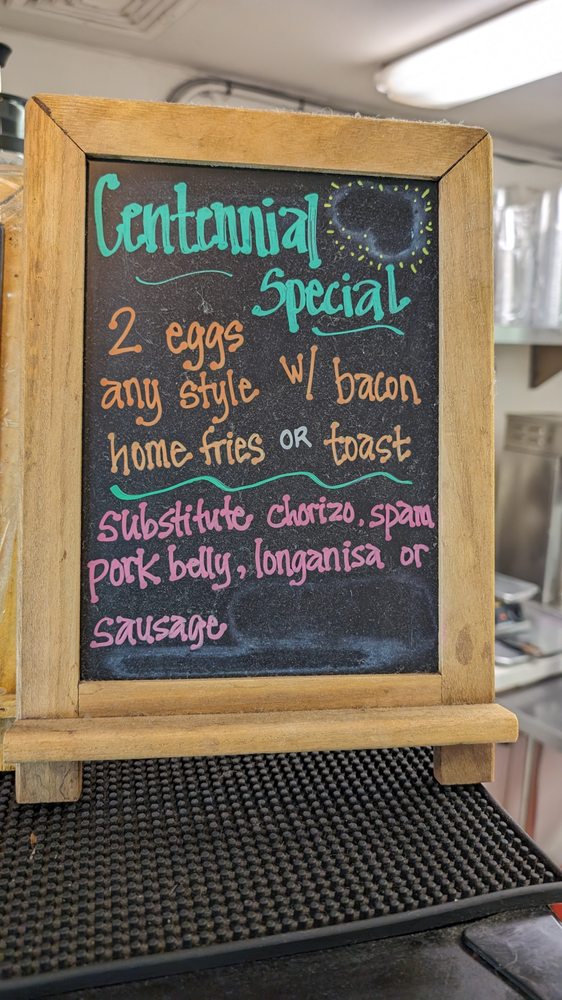 Centennial
Special
2 eggs
any style w/ bacon
home fries OR toast
substitute chorizo, spam
pork belly, longanisa or
sausage